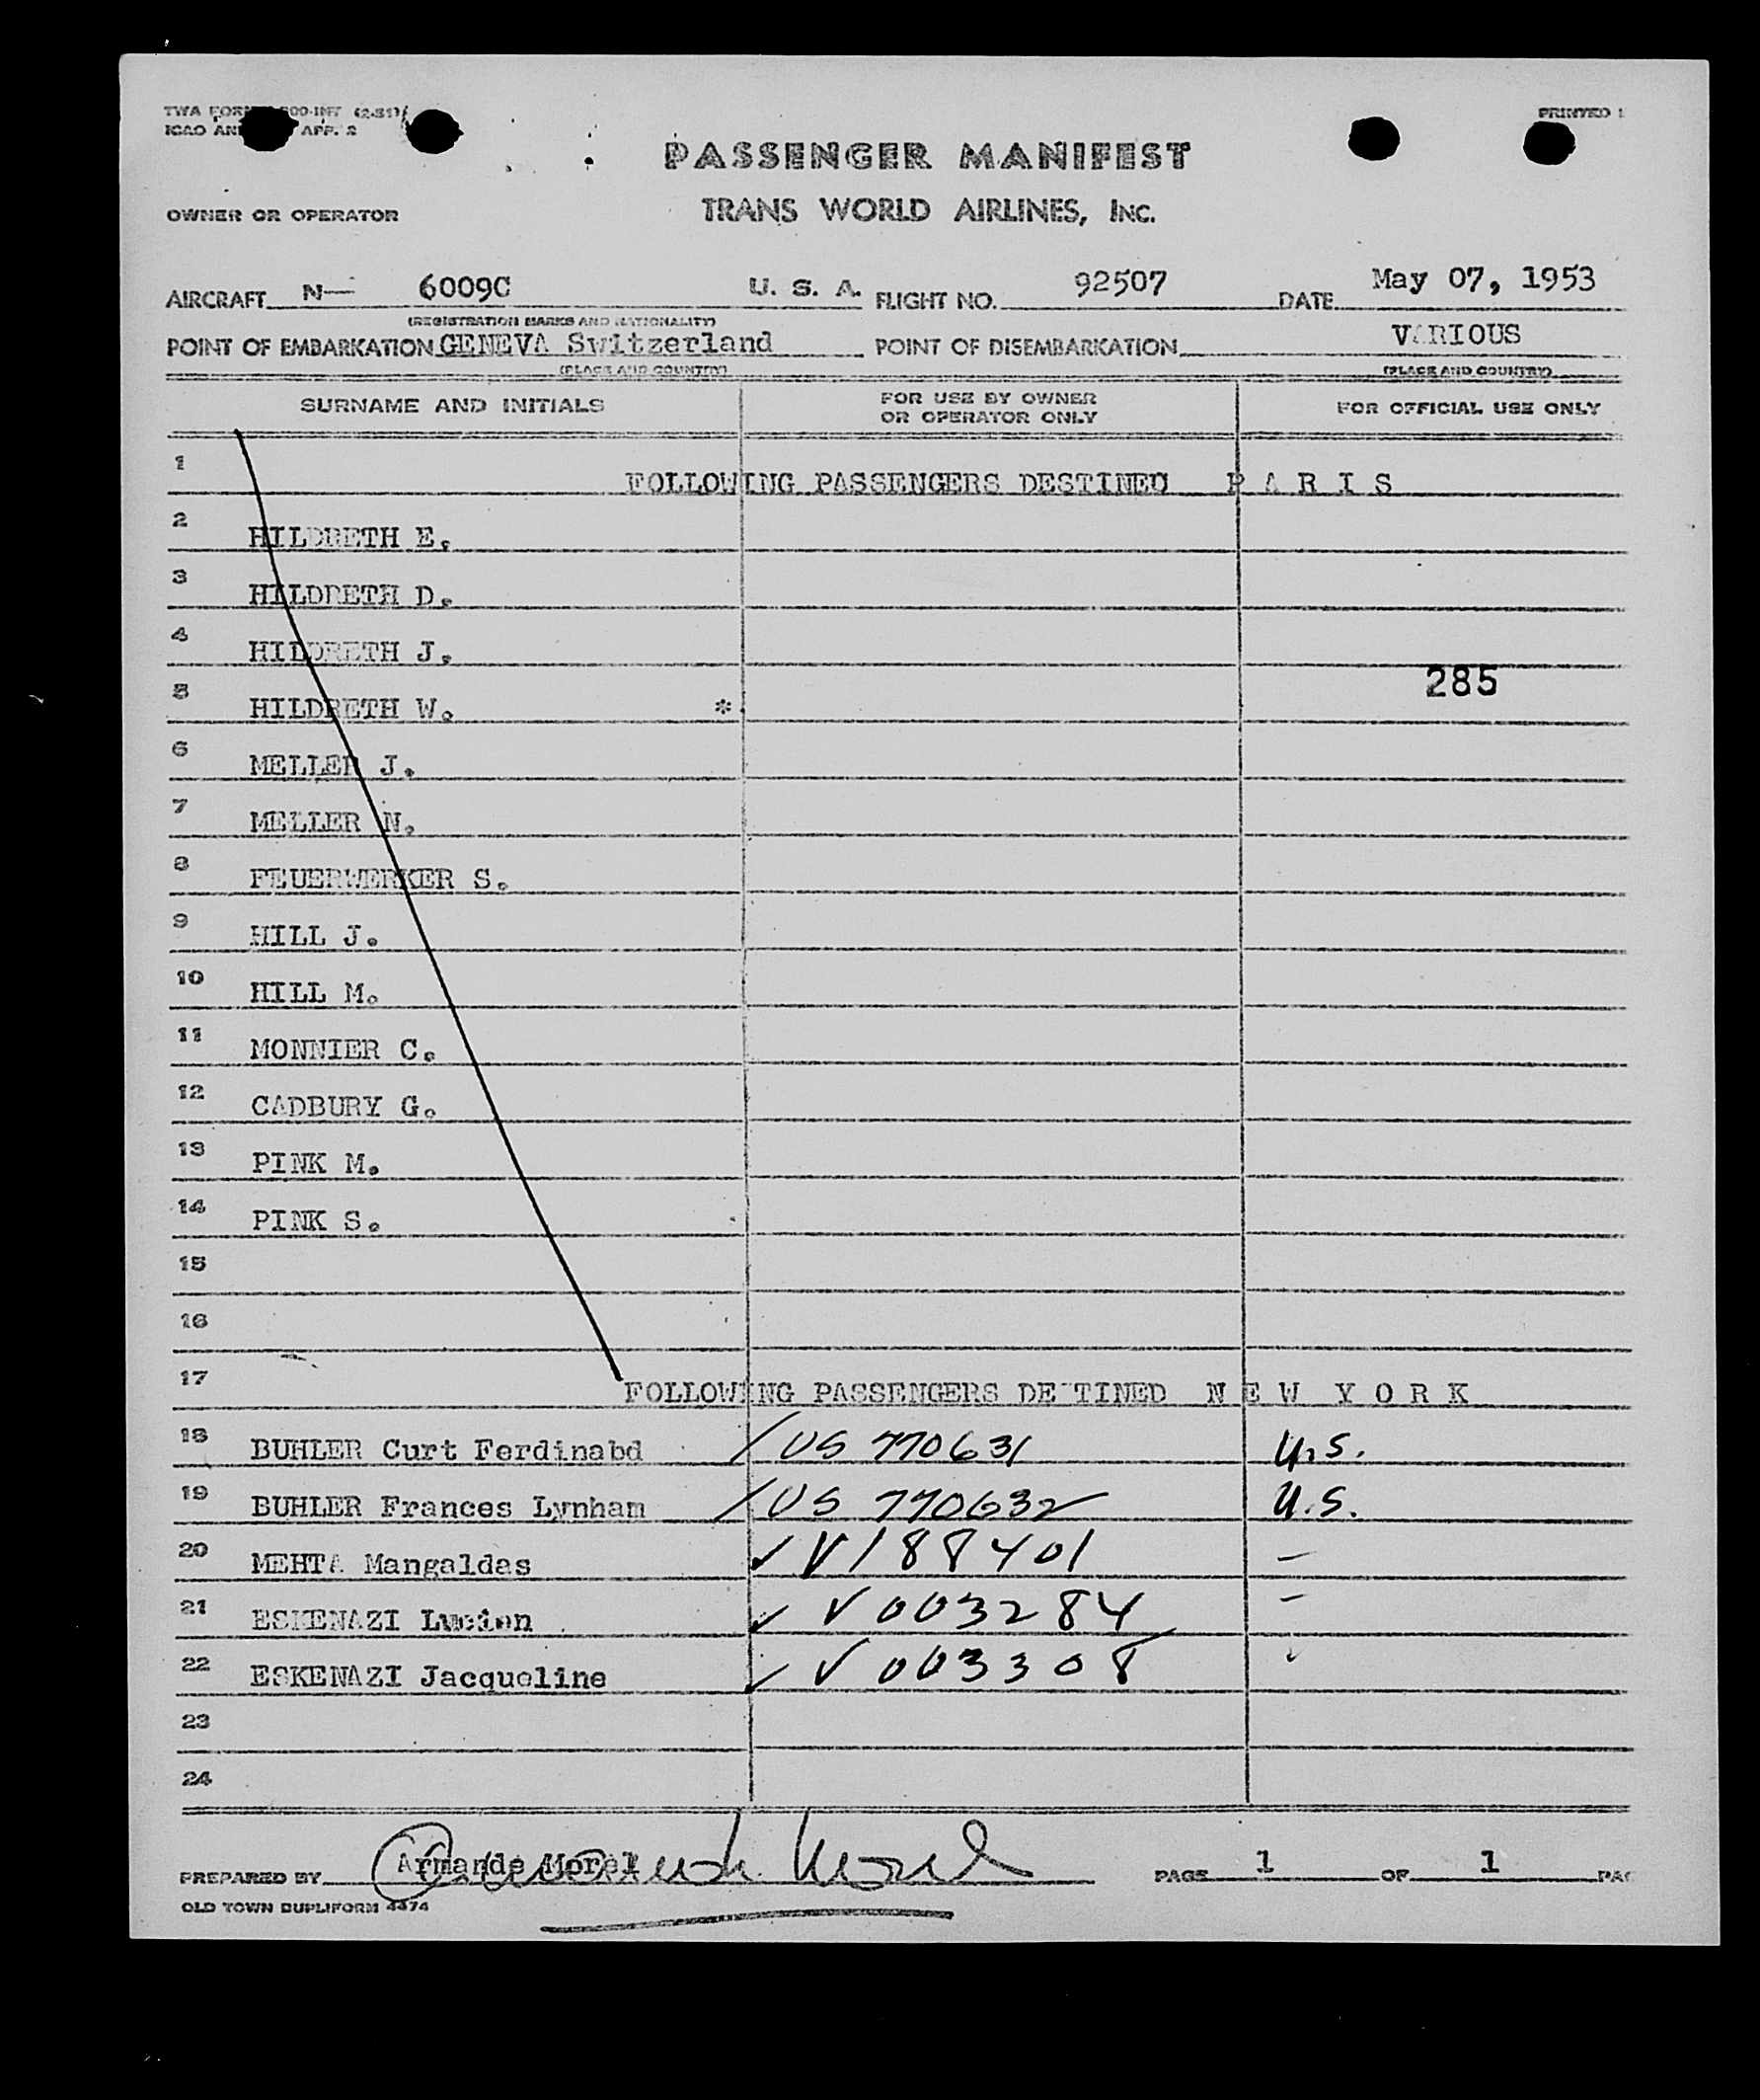 TWA FORM 00-INT (2-51)
ICAO AN APP. 2
PRINTED
PASSENGER MANIFEST
OWNER OR OPERATOR TRANS WORLD AIRLINES, INC.
AIRCRAFT N— 6009C U. S. A. FLIGHT NO. 92507 DATE May 07, 1953
(REGISTRATION MARKS AND NATIONALITY)
POINT OF EMBARKATION GENEVA Switzerland POINT OF DISEMBARKATION VARIOUS
(PLACE AND COUNTRY) (PLACE AND COUNTRY)
SURNAME AND INITIALS FOR USE BY OWNER OR OPERATOR ONLY FOR OFFICIAL USE ONLY
1 FOLLOWING PASSENGERS DESTINED P A R I S
2 HILDRETH E.
3 HILDRETH D.
4 HILDRETH J.
285
5 HILDRETH W. *
6 MELLER J.
7 MELLER N.
8 FEUERWERKER S.
9 HILL J.
10 HILL M.
11 MONNIER C.
12 CADBURY G.
13 PINK M.
14 PINK S.
15
16
17 FOLLOWING PASSENGERS DE TINED N E W Y O R K
18 BUHLER Curt Ferdinabd / US 770631 U.S.
19 BUHLER Frances Lynham / US 770632 U.S.
20 MEHTA Mangaldas ✓ V188401 —
21 ESKENAZI Lucien ✓ V003284 —
22 ESKENAZI Jacqueline ✓ V003308
23
24
PREPARED BY Armande Morel Armande Morel PAGE 1 OF 1 PAG
OLD TOWN DUPLIFORM 4474